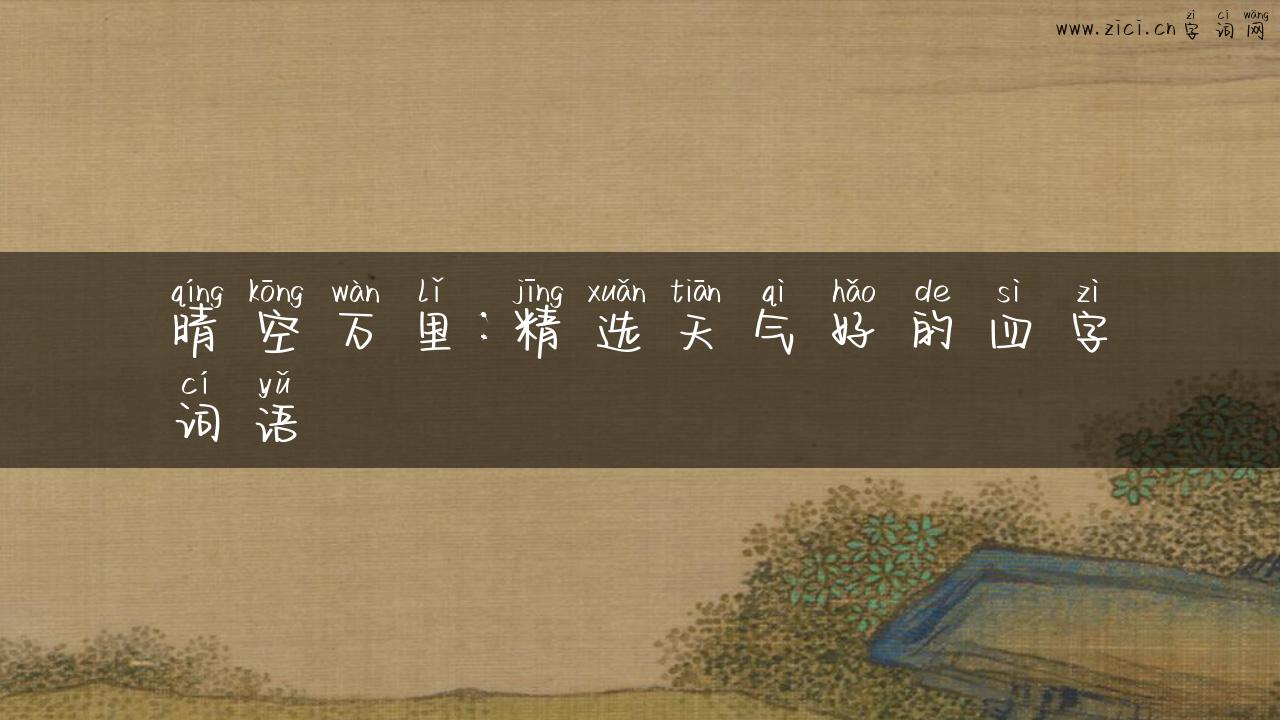 zì cí wǎng
www.zici.cn字词网
qíng kōng wàn lǐ jīng xuǎn tiān qì hǎo de sì zì
晴空万里:精选天气好的四字
cí yǔ
词语